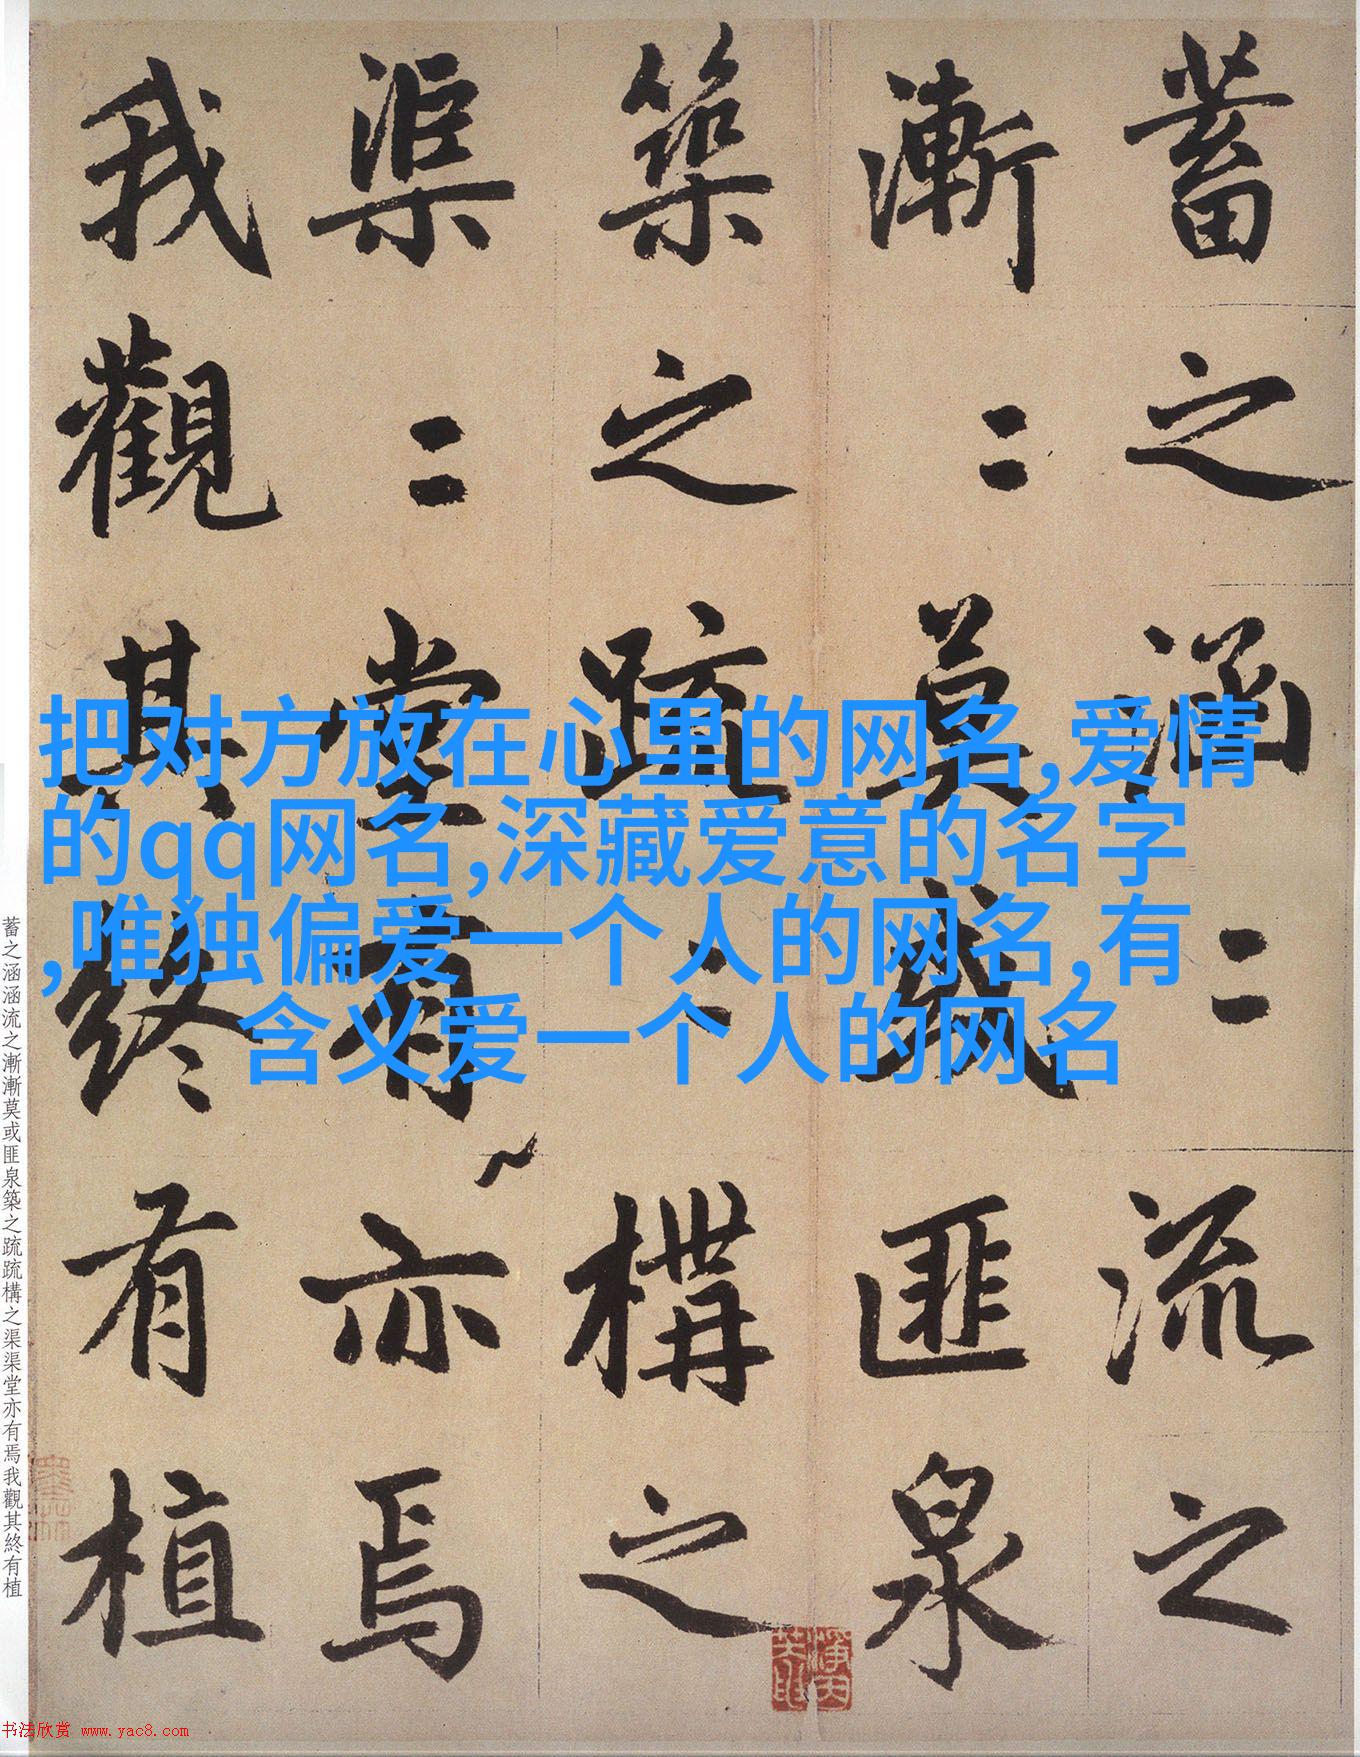 蓄之涵二流之
漸二莫或匪泉
築之疏二構之
渠二堂有亦焉
我觀其終有植
把对方放在心里的网名,爱情
的qq网名,深藏爱意的名字
,唯独偏爱一个人的网名,有
含义爱一个人的网名
蓄之涵涵流之漸漸莫或匪泉築之疏疏構之渠渠堂亦有焉我觀其終有植
书法欣赏 www.yac8.com